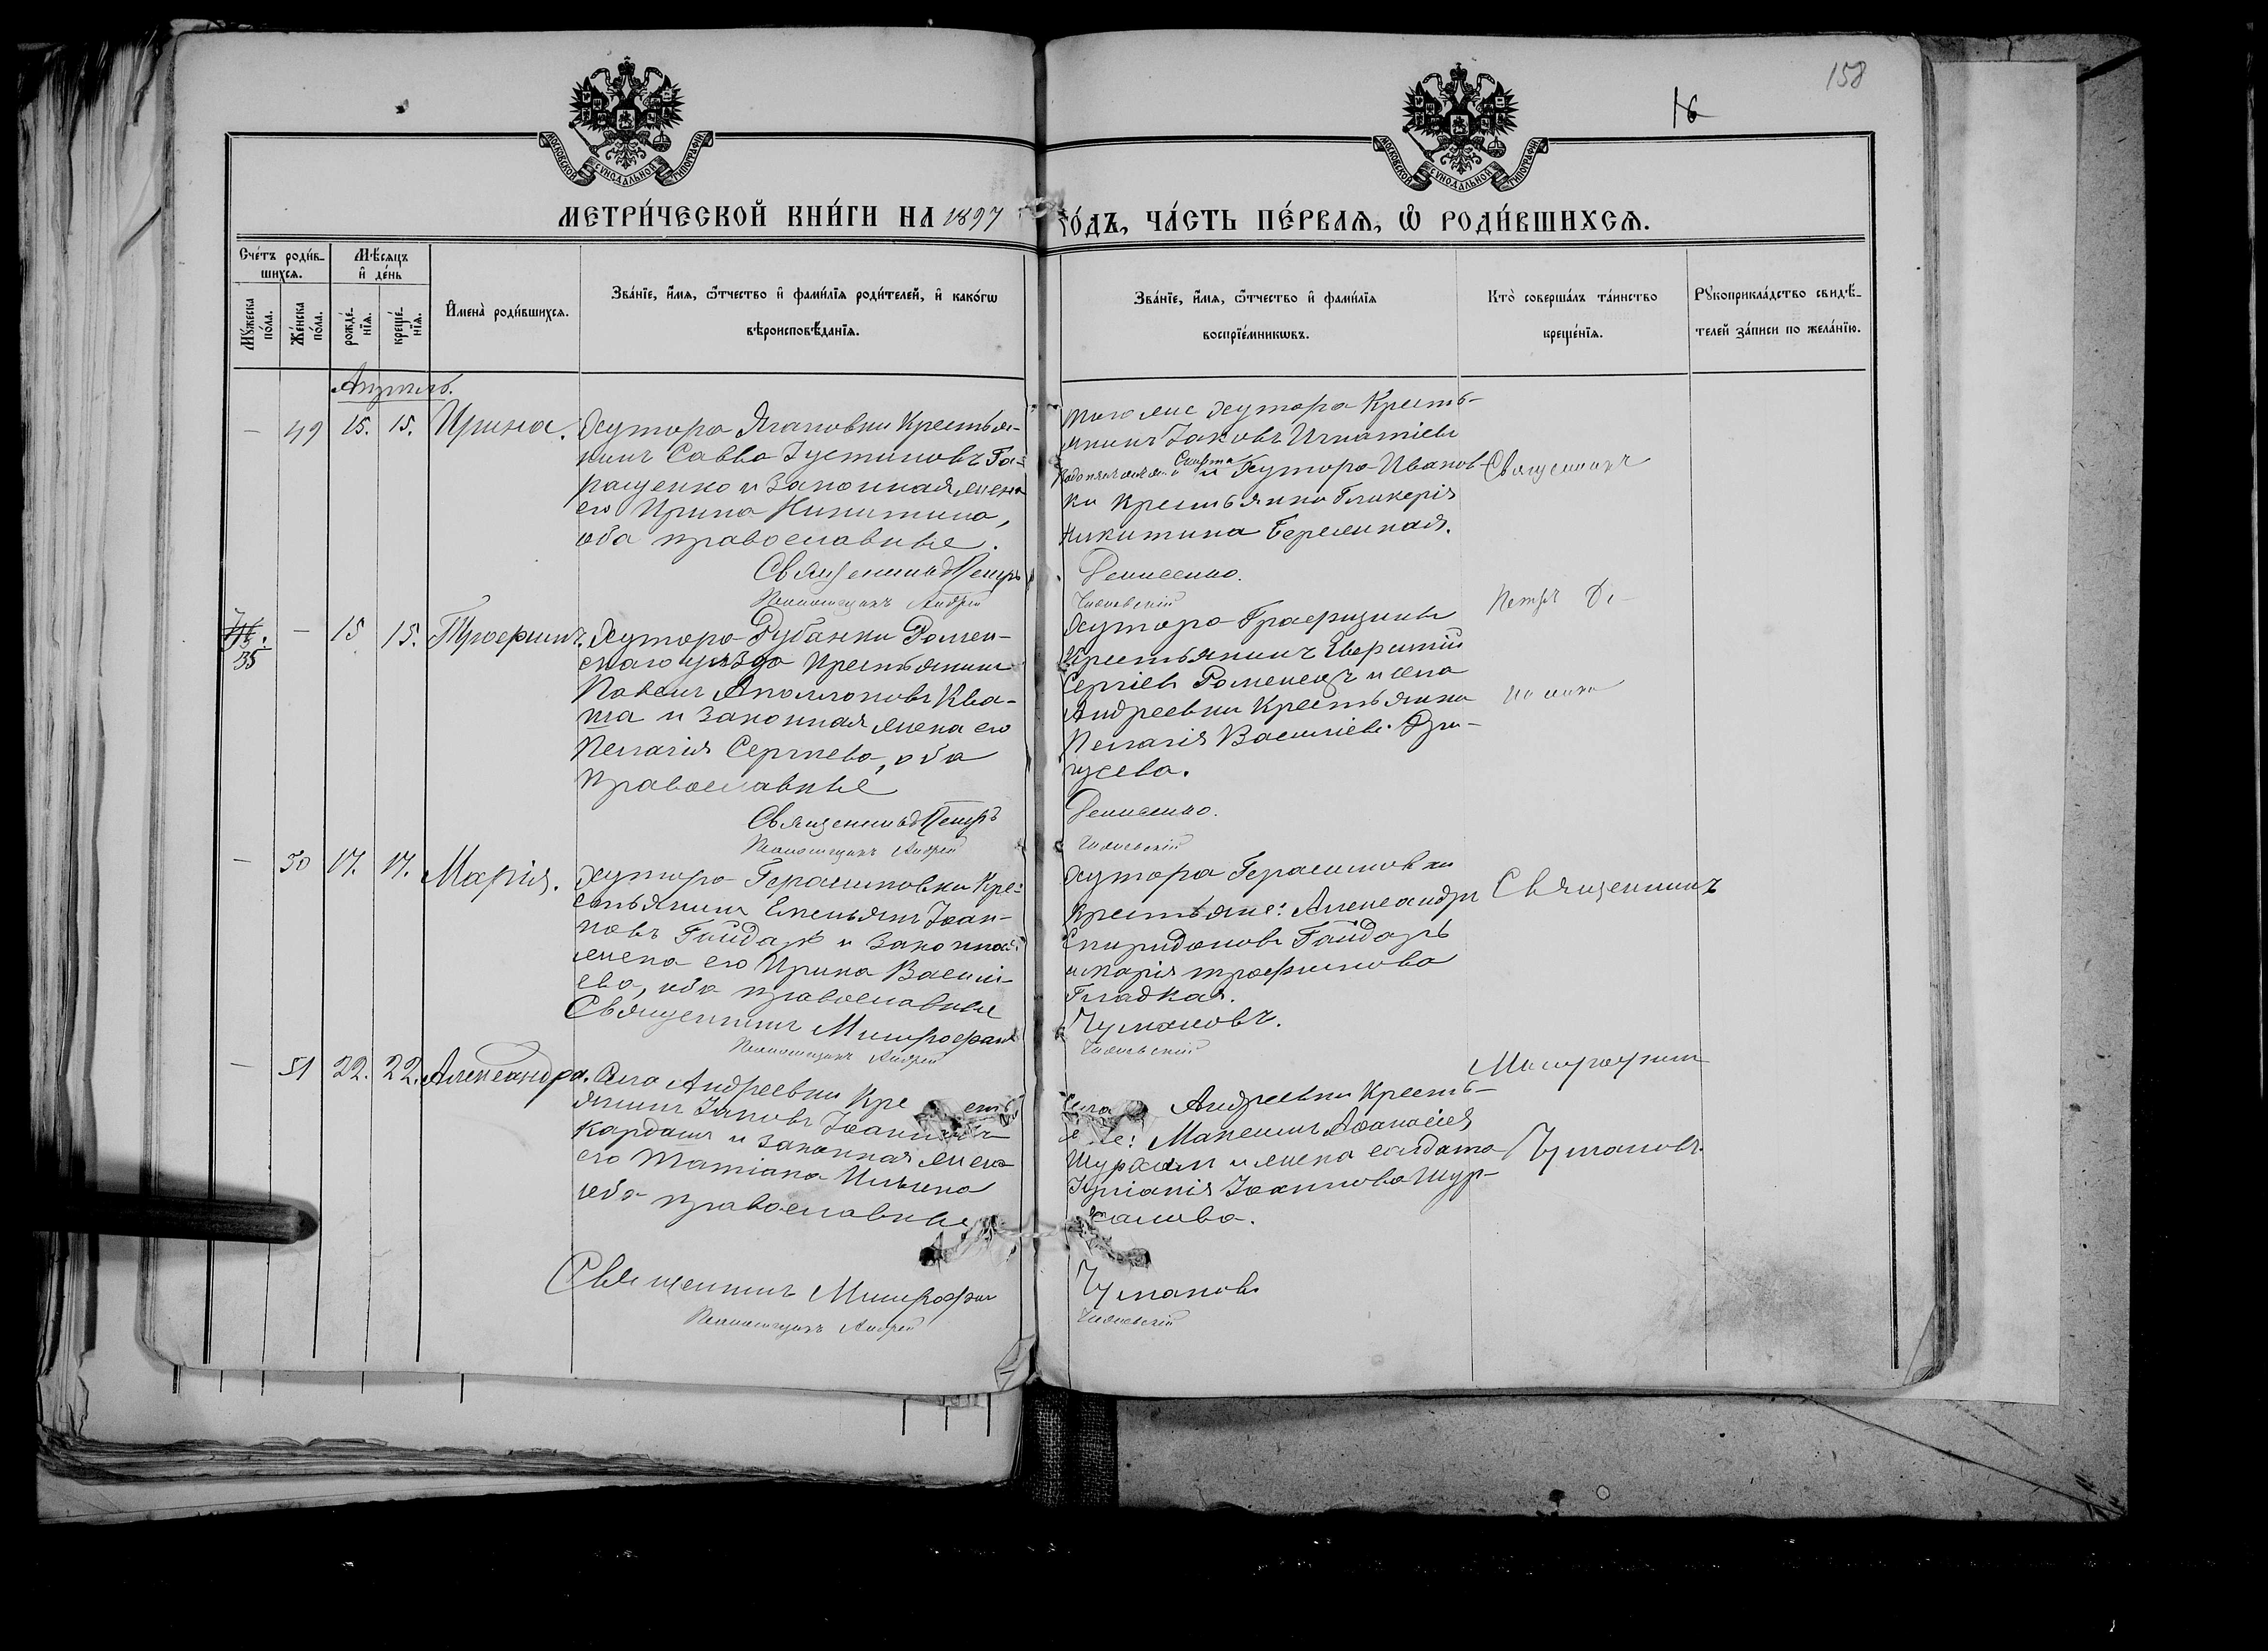 158
16
МОСКОВСКОЙ СУНОДАЛЬНОЙ ТИПОГРАФІИ
МОСКОВСКОЙ СУНОДАЛЬНОЙ ТИПОГРАФІИ
МЕТРИ́ЧЕСКОЙ КНИ́ГИ НА 1897 ГО́ДЪ, ЧА́СТЬ ПЕ́РВАѦ, Ѡ РОДИ́ВШИХСѦ.
Сче́тъ роди́в-
шихсѧ.
Мѣсѧцъ
и де́нь
Мꙋ́жеска
по́ла.
Же́нска
по́ла.
рожде́-
нїѧ.
креще́-
нїѧ.
Имена̀ роди́вшихсѧ.
Зва́нїе, и́мѧ, ѻ́тчество и фами́лїѧ роди́телей, и како́гѡ
вѣроисповѣ́данїѧ.
Зва́нїе, и́мѧ, ѻ́тчество и фами́лїѧ
воспрїе́мникѡвъ.
Кто̀ соверша́лъ та́инство
креще́нїѧ.
Рꙋкоприкла́дство свидѣ́-
телей за́писи по жела́нїю.
Апрѣль.
— 49 15. 15. Ирина.
Хутора Ягановки Крестья-
нинъ Савва Іустиновъ Га-
ращенко и законная жена
его Ирина Никитина,
оба православные.
Священникъ Петръ
Псаломщикъ Андрей
того же хутора Кресть-
янинъ Іаковъ Игнатіевъ
и Хутора Иванов-
ки крестьянка Гликерія
Никитина Беременная.
Денисенко.
Священникъ
Петръ Де-
нисенко
35 — 15 15. Трофимъ.
Хутора Дубанки Ромен-
скаго уѣзда Крестьянинъ
Павелъ Аполлоновъ Ква-
ша и законная жена его
Пелагія Сергіева, оба
православные
Священникъ Петръ
Псаломщикъ Андрей
Хутора
Крестьянинъ Евфимій
Сергіевъ Роменецъ и села
Андреевки Крестьянка
Пелагія Василіева
Денисенко.
— 50 17. 17. Марія.
Хутора Герасимовки Кре-
стьянинъ Емельянъ Іоан-
новъ Гайдаръ и законная
жена его Ирина Василі-
ева, оба православные
Священникъ Митрофанъ
Псаломщикъ Андрей
Хутора Герасимовки
Крестьяне: Александръ
Спиридоновъ Гайдаръ
и Марія Трофимова
Гладкая.
Чумаковъ.
Священникъ
Митрофанъ
Чумаковъ.
— 51 22. 22. Александра.
Села Андреевки Кресть
янинъ Іаковъ Іоанновъ
Кардашъ и законная жена
его Татіана Ильина
оба православные
Священникъ Митрофанъ
Псаломщикъ Андрей
Села Андреевки Кресть-
яне: Максимъ Аѳанасіевъ
и жена солдата
Іакимова Шур-
Чумаковъ